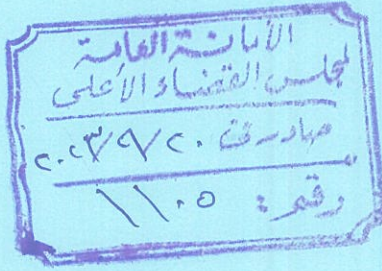 الأمانة العامة
لمجلس القضاء الأعلى
صادر في ٢٠٢٣/٩/٢٠
رقم: ١١٠٥